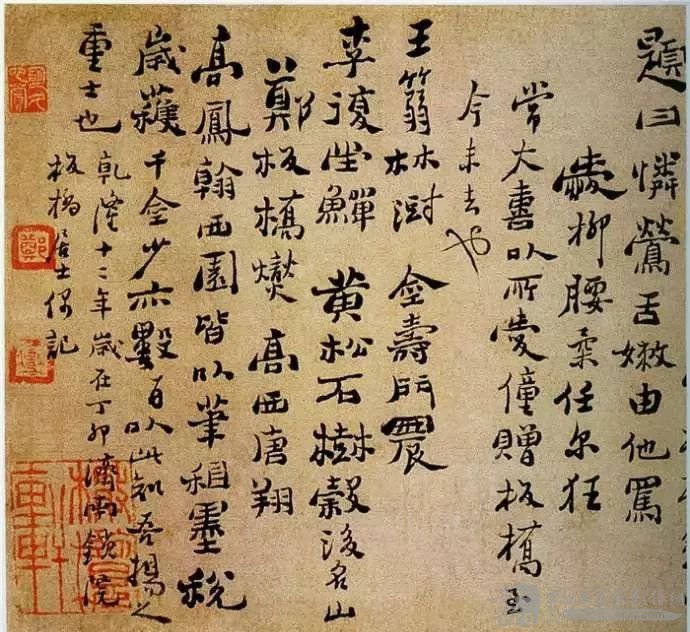 題曰憐鶯舌嫩由他罵
愛柳腰柔任尔狂
常大喜以所愛僮贈板橋至
今未去也
王篛林澍 金壽門農
李復堂鱓 黄松石樹榖後名山
鄭板橋燮 高西唐翔
高鳳翰西園皆以筆租墨稅
歲獲千金少亦數百以此知吾揚之
重士也
乾隆十二年歲在丁卯濟南鎖院
板橋居士偶記
鄭